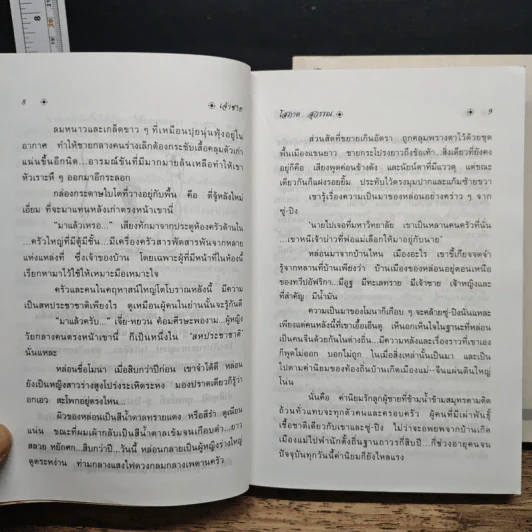 8 เจ้าซาง
ลมหนาวและเกล็ดขาว ๆ ที่เหมือนปุยนุ่นฟุ้งอยู่ใน
อากาศ ทำให้ชายกลางคนร่างเล็กต้องกระชับเสื้อคลุมตัวเก่า
แน่นขึ้นอีกนิด...อารมณ์ขันที่มีมากมายล้นเหลือทำให้เขา
หัวเราะหึ ๆ ออกมาอีกระลอก
กล่องกระดาษใบโตที่วางอยู่กับพื้น คือ ตี่จู้หลังใหม่
เอี่ยม ที่จะมาแทนหลังเก่าตรงหน้าเขานี่
"มาแล้วเหรอ..." เสียงทักมาจากประตูห้องครัวด้านใน
...ครัวใหญ่ที่มีตู้มีชั้น...มีเครื่องครัวสารพัดสารพันจากหลาย
แห่งแหล่งที่ ซึ่งเจ้าของบ้าน โดยเฉพาะผู้ที่มีหน้าที่ในห้องนี้
เรียกหามาไว้ใช้ให้เหมาะมือเหมาะใจ
ครัวและคนในคฤหาสน์ใหญ่โตโบราณหลังนี้ มีความ
เป็นสหประชาชาติเพียงไร ดูเหมือนผู้คนในย่านนั้นจะรู้กันดี
"มาแล้วครับ..." เจี่ย-หยวน ค้อมศีรษะพองาม...ผู้หญิง
วัยกลางคนตรงหน้าเขานี่ ก็เป็นหนึ่งใน "สหประชาชาติ"
นั่นแหละ
หล่อนชื่อโมนา เมื่อสิบกว่าปีก่อน เขาจำได้ดี หล่อน
ยังเป็นหญิงสาวร่างสูงโปร่งระเหิดระหง มองปราดเดียวก็รู้ว่า
อกเอว สะโพกอยู่ตรงไหน...
ผิวของหล่อนเป็นสีน้ำตาลทรายแดง หรือสีรำ ดูเนียน
แน่น ขณะที่ผมเผ้ากลับเป็นสีน้ำตาลเข้มจนเกือบดำ...ยาว
สลวย หยักศก...สิบกว่าปี...วันนี้ หล่อนกลายเป็นผู้หญิงร่างใหญ่
ดูตระหง่าน ท่ามกลางแสงไฟดวงกลมกลางเพดานครัว
โสภาค สุวรรณ 9
ส่วนสัดที่ขยายเกินอัตรา ถูกคลุมพรางตาไว้ด้วยชุด
พื้นเมืองแขนยาว ชายกระโปรงยาวถึงข้อเท้า...สิ่งเดียวที่ยังคง
อยู่ก็คือ เสียงพูดค่อนข้างดัง และนัยน์ตาที่มีแววดุ แต่ขณะ
เดียวกันก็แฝงรอยยิ้ม ประทับไว้ตรงมุมปากและแก้มซ้ายขวา
เขารู้เรื่องความเป็นมาของหล่อนอย่างคร่าว ๆ จาก
ซู่-ปิง
"นายไปเจอที่มหาวิทยาลัย เขาเป็นหลานคนครัวที่นั่น
...เขาหนีเจ้าบ่าวที่พ่อแม่เลือกให้มาอยู่กับนาย"
หล่อนมาจากบ้านไหน เมืองอะไร เขาขี้เกียจจดจำ
รู้จากหลานที่บ้านเพียงว่า บ้านเมืองของหล่อนอยู่ตอนเหนือ
ของทวีปอัฟริกา...มีอูฐ มีทะเลทราย มีเจ้าชาย เจ้าหญิงและ
ที่สำคัญ มีน้ำมัน
ความเป็นมาของโมนาก็เกือบ ๆ จะคล้ายซู่-ปิงนั่นแหละ
เพียงแต่คนหลังนี่ที่เขาเอื้อเอ็นดู เห็นอกเห็นใจในฐานะที่หล่อน
เป็นคนจีนด้วยกันในต่างถิ่น...มีความหลังและเรื่องราวที่เขาเอง
ก็พูดไม่ออก บอกไม่ถูก ในเมื่อสิ่งเหล่านั้นเป็นมา และเป็น
ไปตามค่านิยมของท้องถิ่นบ้านเกิดเมืองแม่-จีนแผ่นดินใหญ่
โน่น
นั่นคือ ค่านิยมรักลูกผู้ชายที่ข้ามน้ำข้ามสมุทรตามติด
ถ้วนทั่วแทบจะทุกตัวคนและครอบครัว ผู้คนที่มีเผ่าพันธุ์
เชื้อชาติเดียวกับเขาและซู่-ปิง ไม่ว่าจะอพยพจากบ้านเกิด
เมืองแม่ไปพำนักตั้งถิ่นฐานถาวรกี่สิบปี...กี่ช่วงอายุคนจน
ปัจจุบันทุกวันนี้ค่านิยมก็ยังไหลแรง